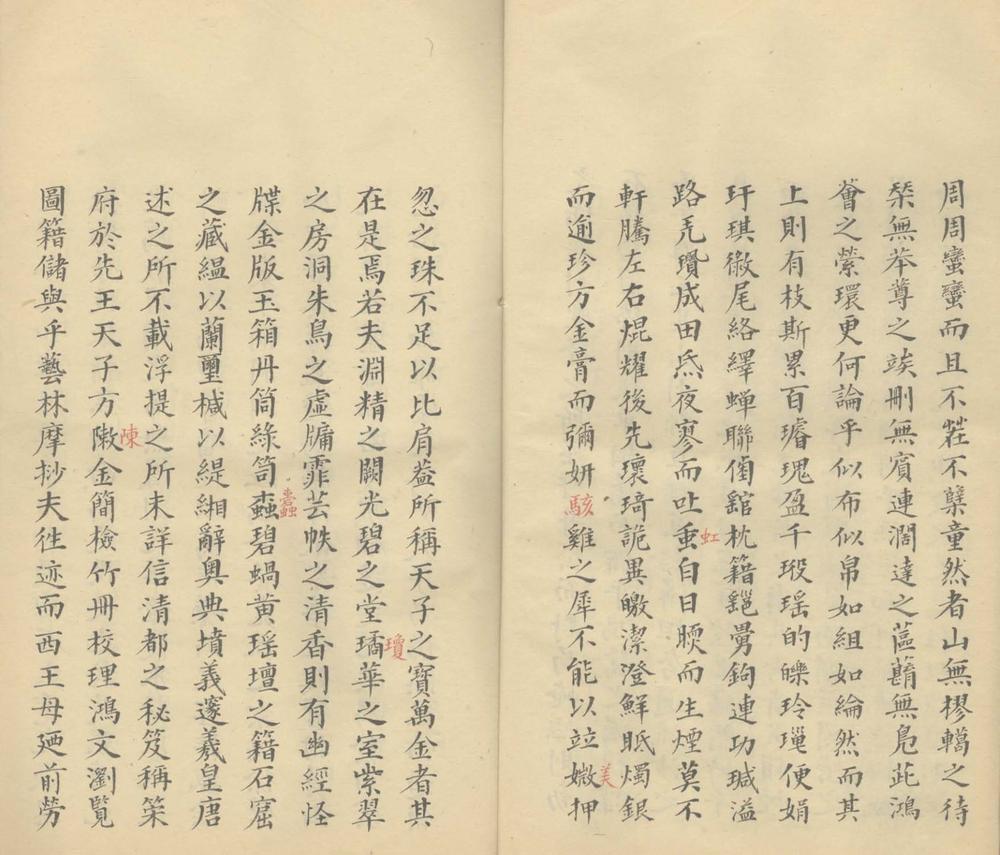 周周蠻蠻而且不茬不櫱童然者山無樛轕之待
榮無莽尊之竢刪無賓連濶達之蓲蘛無凫茈鴻
薈之縈環更何論乎似布似帛如組如綸然而其
上則有枝斯累百璿瑰盈千瑖瑶的皪玲瓏便娟
玕琪徽尾絡繹蟬聯傋錧枕籍鎹舅鉤連功瑊溢
路旡瓚成田烝夜寥而吐䖝白日䁔而生煙莫不
軒騰左右焜耀後先瓌琦詭異皦潔澄鮮眂燭銀
而逾珍方金膏而彌妍雞之犀不能以竝媺押
忽之珠不足以比肩葢所稱天子之寳萬金者其
在是焉若夫淵精之闕光碧之堂璚華之室紫翠
之房洞朱鳥之虛牗霏芸帙之清香則有幽經怪
牒金版玉箱丹筒綠笥蝱碧蝸黄瑶壇之籍石窟
之藏緼以蘭壐椷以緹緗辭奥典墳義邃羲皇唐
述之所不載浮提之所未詳信清都之秘笈稱策
府於先王天子方敶金簡檢竹冊校理鴻文瀏覽
圖籍儲與乎藝林摩抄夫徃迹而西王母廼前勞
駭
虹
美
瓊
蠹
陳